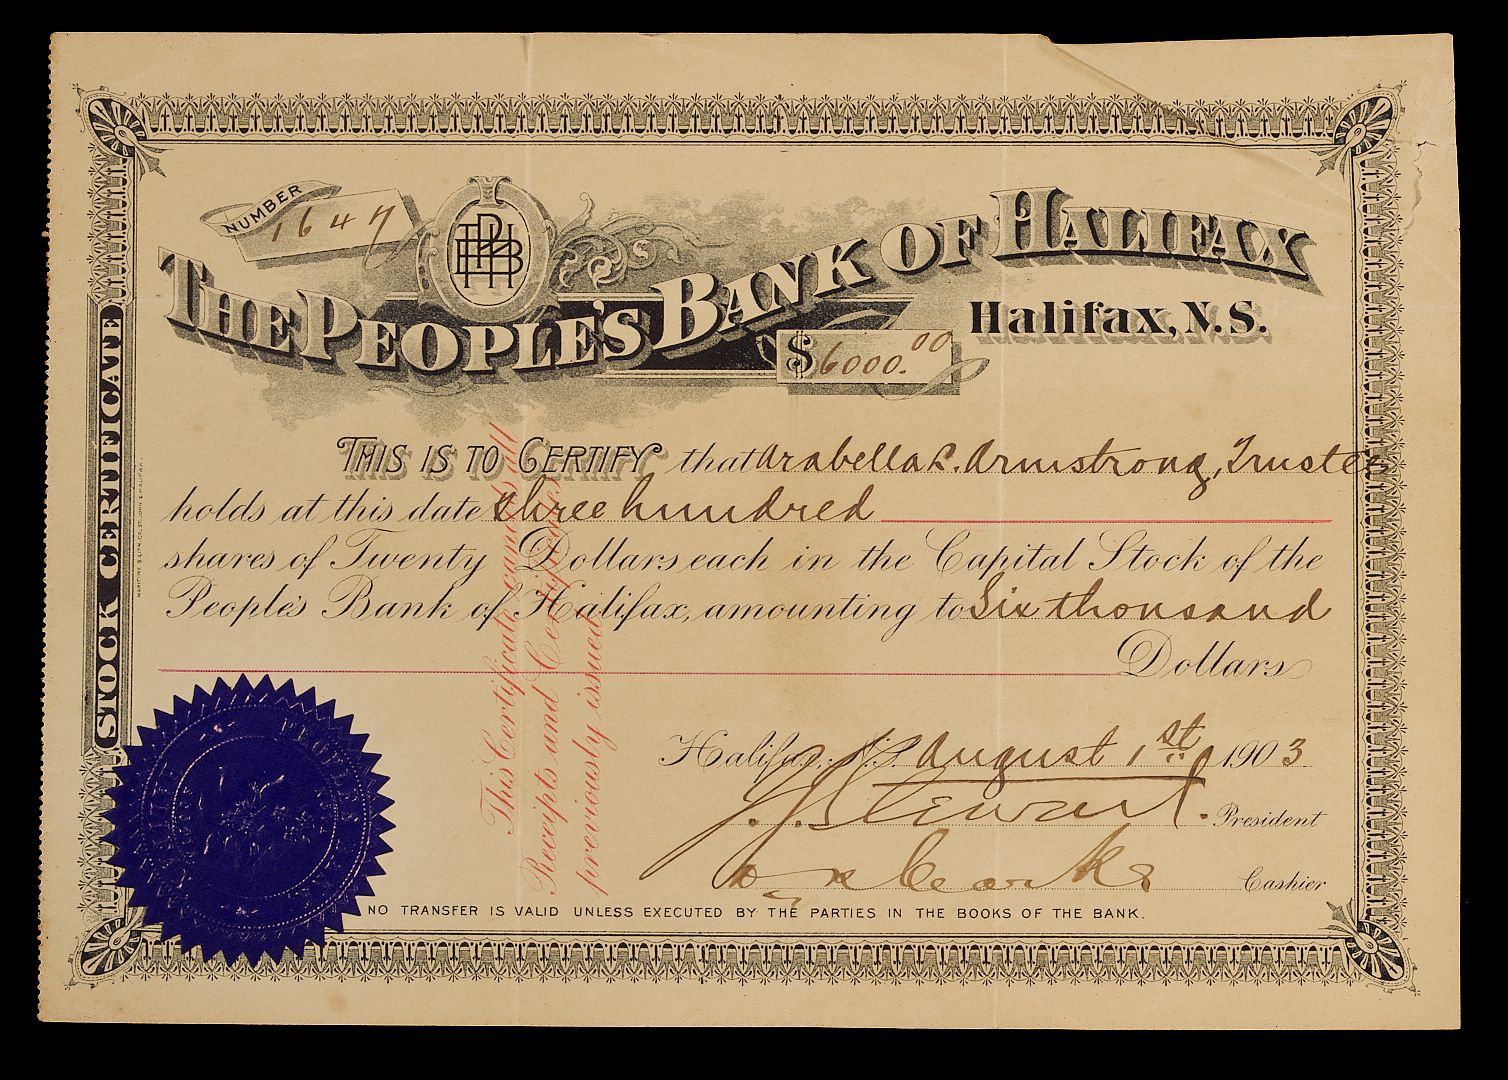 NUMBER
1647
PBH
THE PEOPLE'S BANK OF HALIFAX
Halifax, N.S.
$6000.00
THIS IS TO CERTIFY, that Arabella L. Armstrong, Trustee
holds at this date three hundred
shares of Twenty Dollars each in the Capital Stock of the
People's Bank of Halifax, amounting to Six thousand
Dollars
Halifax, N.S. August 1st 1903
J. J. Stewart. President
Clarke Cashier
NO TRANSFER IS VALID UNLESS EXECUTED BY THE PARTIES IN THE BOOKS OF THE BANK.
This Certificate cancels all
Receipts and Certificates
previously issued
STOCK CERTIFICATE